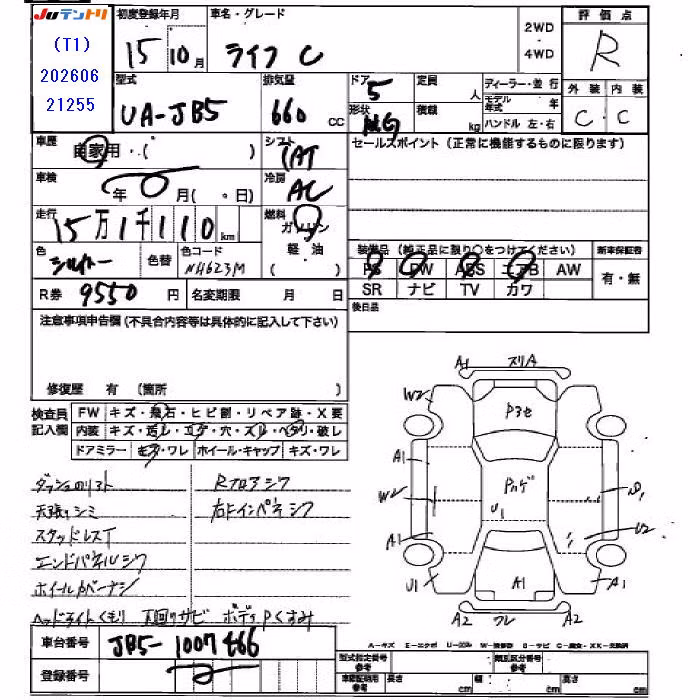 JUテントリ
(T1)
202606
21255
初度登録年月
15 10月
車名・グレード
ライフ C
2WD
・
4WD
評価点
R
型式
UA-JB5
排気量
660 CC
ドア 5
形状
定員 人
積載 kg
ディーラー・並行
モデル年式 年
ハンドル 左・右
外装 内装
C C
車歴
自家用・( )
シフト
AT
セールスポイント(正常に機能するものに限ります)
車検
年 月( ・ 日)
冷房
AC
走行
15万1千110km
燃料
ガソリン
軽・油
( )
色
シルバー
色替
色コード
NH623M
装備品(純正品に限り○をつけてください)
新車保証書
PS PW ABS エアB AW
SR ナビ TV カワ
有・無
R券 9550円
名変期限 月 日
後日品
注意事項申告欄(不具合内容等は具体的に記入して下さい)
修復歴 有 (箇所 )
検査員
記入欄
FW キズ・飛石・ヒビ割・リペア跡・X要
内装 キズ・汚レ・コゲ・穴・スレ・ヘタリ・破レ
ドアミラー キズ・ワレ ホイール・キャップ キズ・ワレ
天張りシミ
スタッドレスT
エンドパネルシワ
ホイールカバーナシ
ヘッドライトくもり 下回りサビ ボディPくすみ
Rフロアシワ
右Fインパネシワ
A1 スリA
W2
P3セ
A1
W2
U1
A1
U2
U1
A1
A1
A2 ワレ A2
A-キズ E-エクボ U-凹み W-補修跡 S-サビ C-腐食・XX-交換済
車台番号
JB5-1007466
登録番号
型式指定番号
参考
類別区分番号
参考
車庫証明用
参考
長さ cm
幅 cm
高さ cm